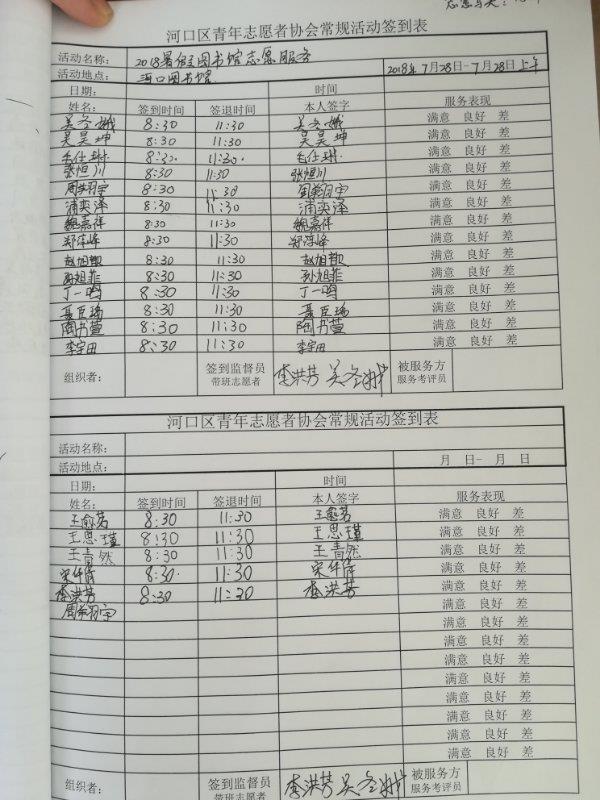 河口区青年志愿者协会常规活动签到表
活动名称： 2018暑假图书馆志愿服务
活动地点： 河口图书馆 2018年7月28日-7月28日上午
日期： 时间
姓名： 签到时间 签退时间 本人签字 服务表现
8:30 11:30 满意 良好 差
吴昊坤 8:30 11:30 吴昊坤 满意 良好 差
毛仕琳 8:30. 11:30. 毛仕琳. 满意 良好 差
张恒川 8:30 11:30 张恒川 满意 良好 差
8:30 11:30 满意 良好 差
浦奕泽 8:30 11:30 浦奕泽 满意 良好 差
魏嘉祥 8:30 11:30 魏嘉祥 满意 良好 差
郑淳峰 8:30 11:30 郑淳峰 满意 良好 差
赵旭歆 8:30 11:30 赵旭歆 满意 良好 差
孙旭菲 8:30 11:30 孙旭菲 满意 良好 差
丁一鸣 8:30 11:30 丁一鸣 满意 良好 差
聂臣瑞 8:30 11:30 聂臣瑞 满意 良好 差
陶书萱 8:30 11:30 陶书萱 满意 良好 差
李宇田 8:30 11:30 李宇田 满意 良好 差
组织者： 签到监督员 带班志愿者 李洪芳 被服务方 服务考评员
河口区青年志愿者协会常规活动签到表
活动名称：
活动地点： 月 日- 月 日
日期： 时间
姓名： 签到时间 签退时间 本人签字 服务表现
王愈芳 8:30 11:30 王愈芳 满意 良好 差
王思瑾 8:30 11:30 王思瑾 满意 良好 差
王青然 8:30 11:30 王青然 满意 良好 差
8:30. 11:30 满意 良好 差
李洪芳 8:30 11:30 李洪芳 满意 良好 差
满意 良好 差
满意 良好 差
满意 良好 差
满意 良好 差
满意 良好 差
满意 良好 差
满意 良好 差
满意 良好 差
满意 良好 差
组织者： 签到监督员 带班志愿者 李洪芳 被服务方 服务考评员